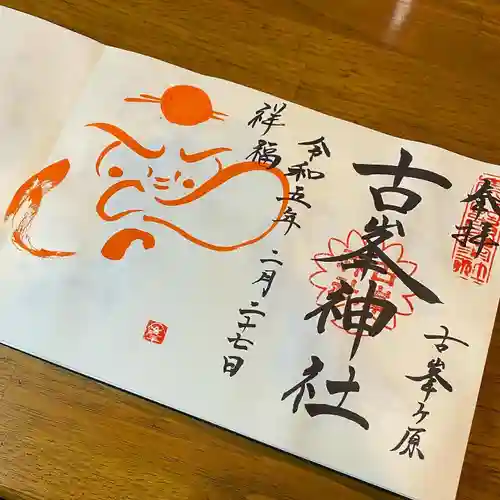 奉拝
古峯ヶ原
古峯神社
令和五年二月二十七日
祥福